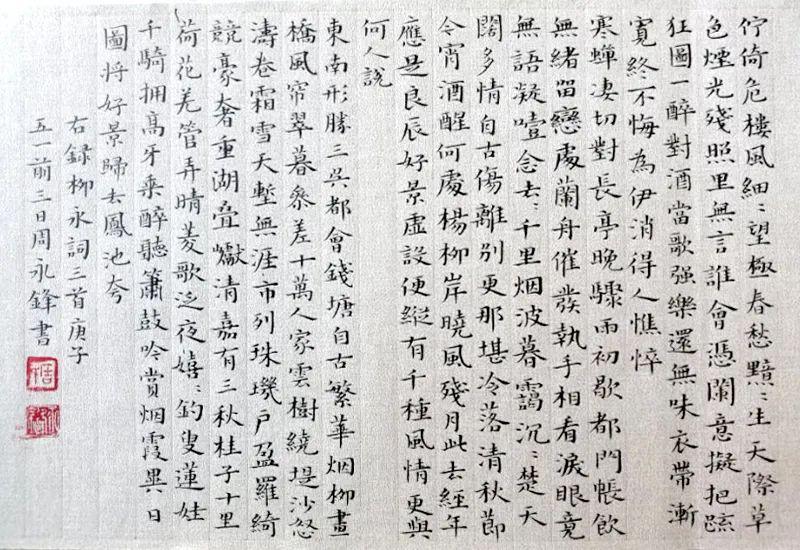 佇倚危樓風細々望極春愁黯々生天際草
色煙光殘照里無言誰會憑闌意擬把疏
狂圖一醉對酒當歌强樂還無味衣帶漸
寬終不悔為伊消得人憔悴
寒蟬凄切對長亭晚驟雨初歇都門帳飲
無緒留戀處蘭舟催發執手相看淚眼竟
無語凝噎念去々千里烟波暮靄沉々楚天
闊多情自古傷離別更那堪冷落清秋節
今宵酒醒何處楊柳岸曉風殘月此去經年
應是良辰好景虛設便縱有千種風情更與
何人説
東南形勝三吳都會錢塘自古繁華烟柳畫
橋風帘翠暮參差十萬人家雲樹繞堤沙怒
濤卷霜雪天塹無涯市列珠璣戶盈羅綺
競豪奢重湖疊巘清嘉有三秋桂子十里
荷花羌管弄晴菱歌泛夜嬉々釣叟蓮娃
千騎拥高牙乘醉聽簫鼓吟賞烟霞異日
圖將好景歸去鳳池夸
右録柳永詞三首庚子
五一前三日周永鋒書